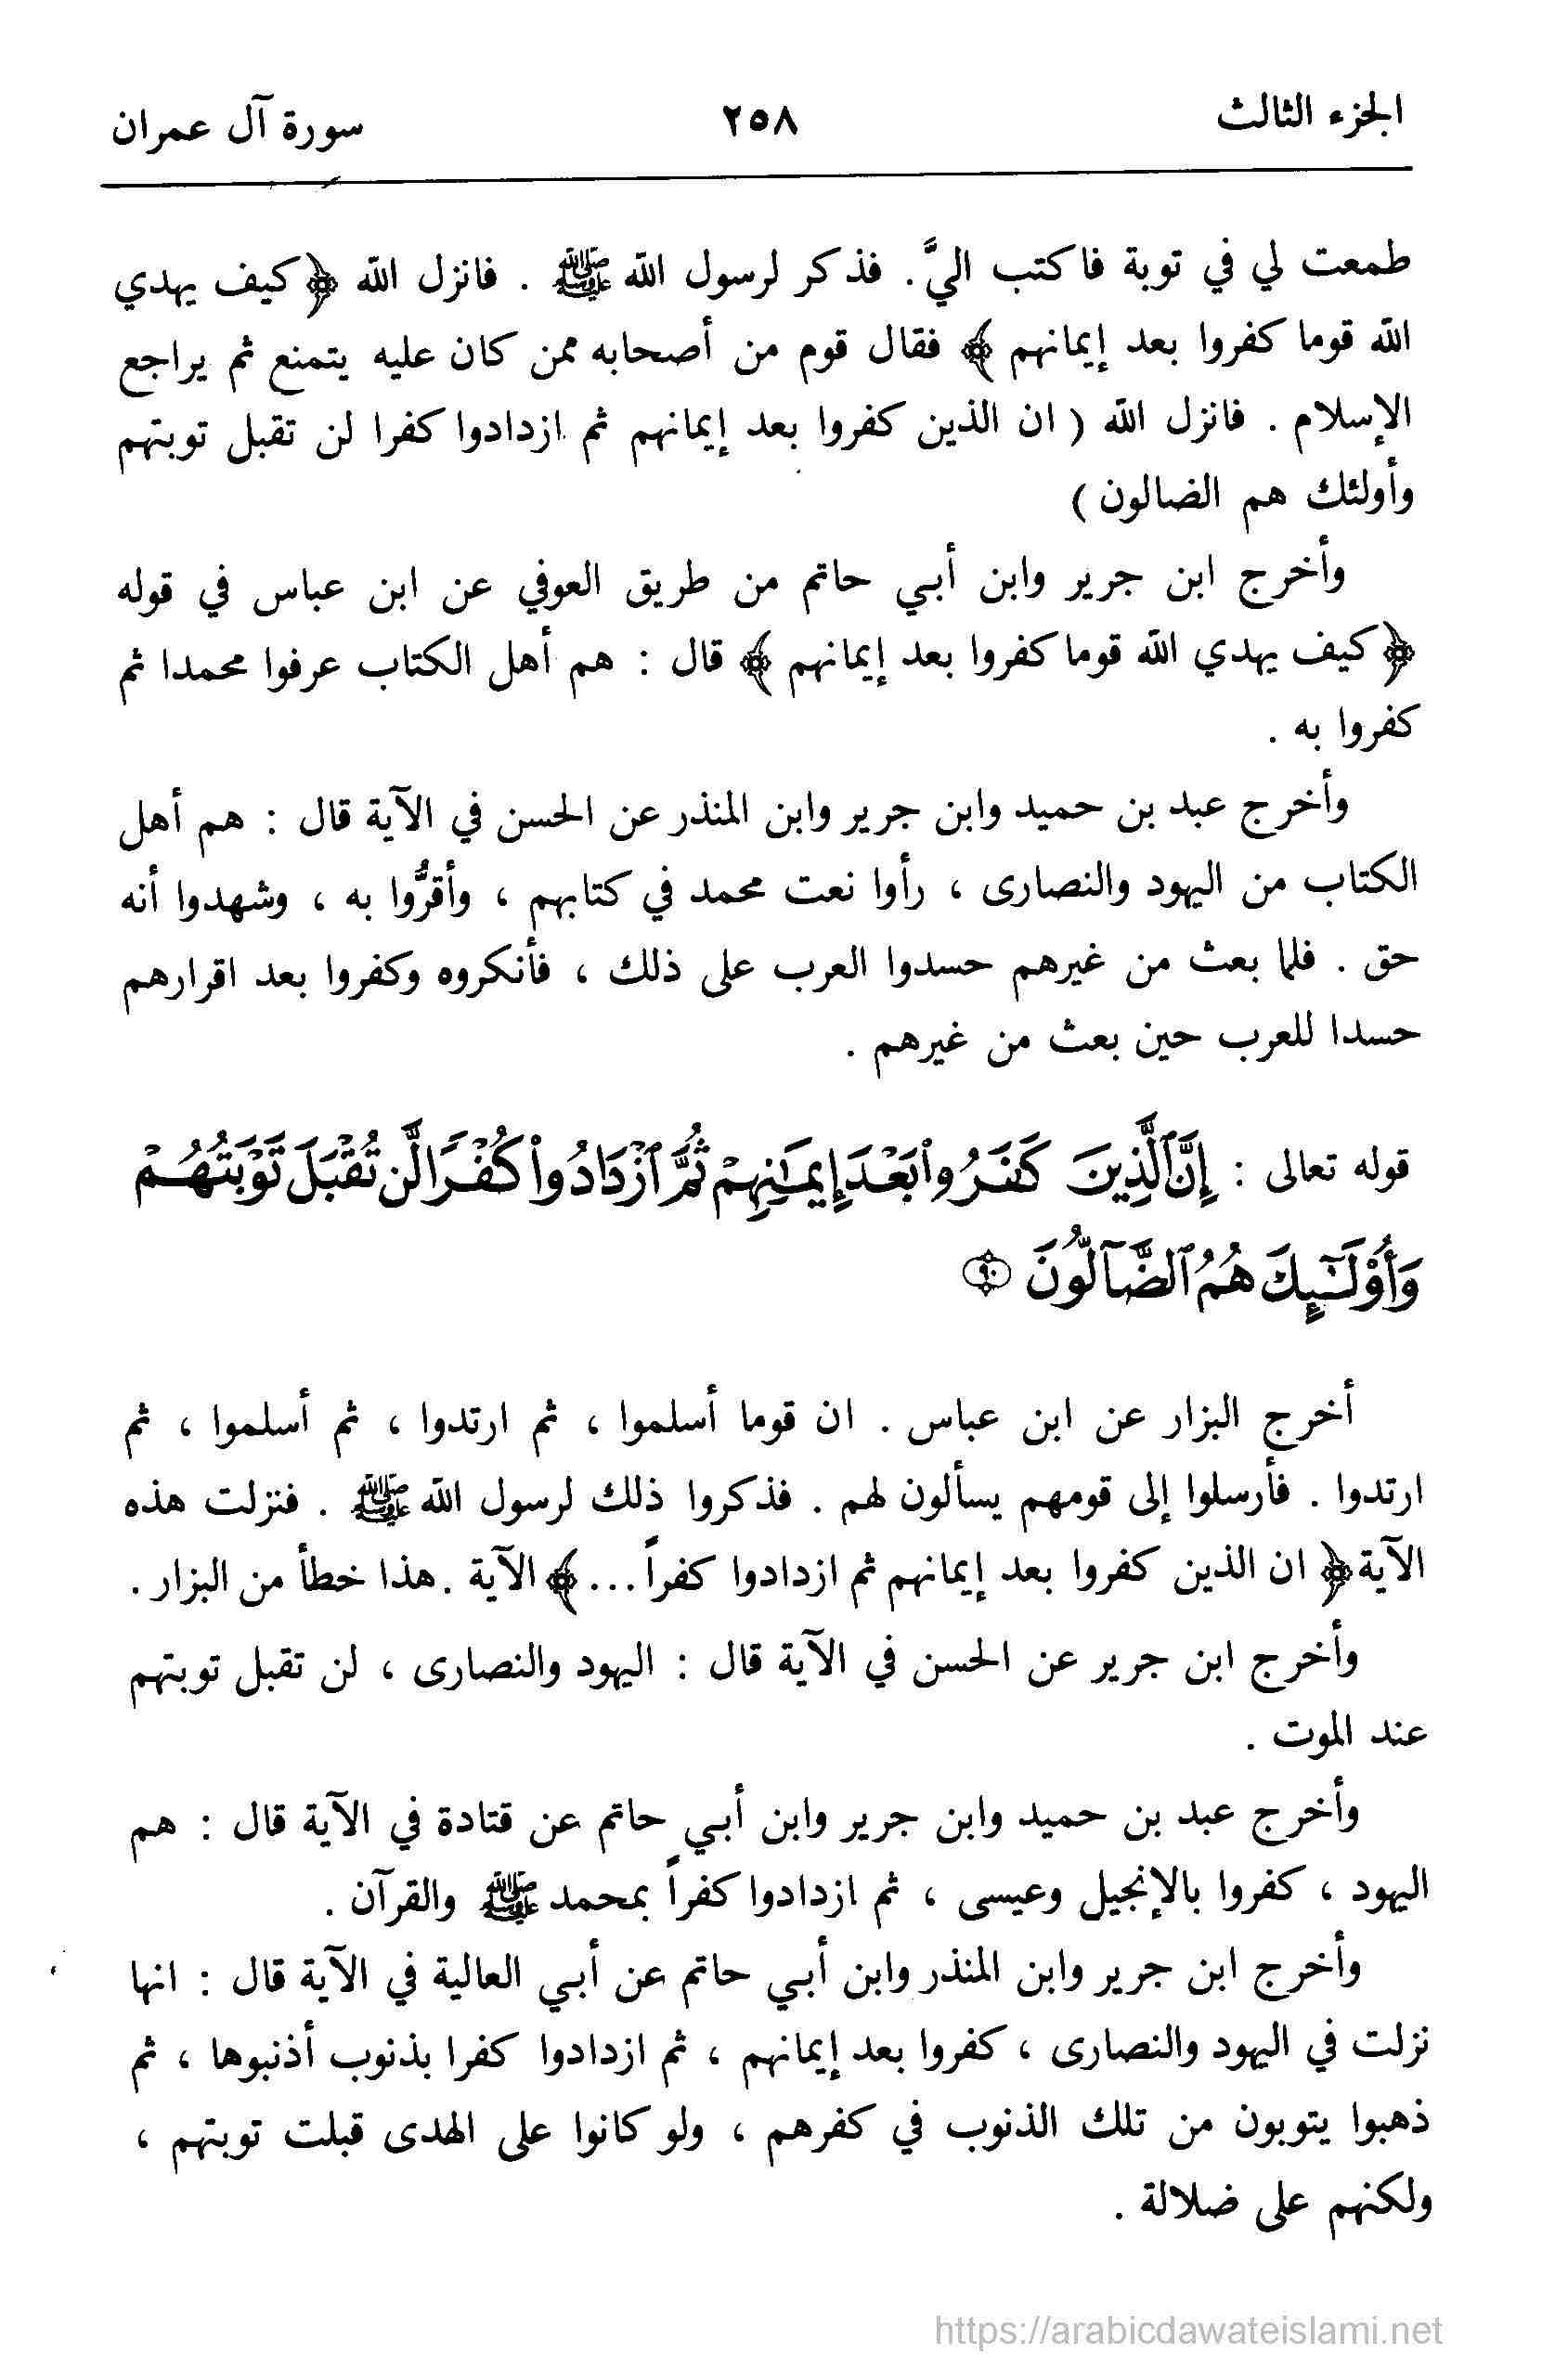 الجزء الثالث ٢٥٨ سورة آل عمران
طمعت لي في توبة فاكتب اليَّ. فذكر لرسول الله ﷺ . فانزل الله ﴿كيف يهدي
الله قوما كفروا بعد إيمانهم ﴾ فقال قوم من أصحابه ممن كان عليه يتمنع ثم يراجع
الإسلام . فانزل الله ( ان الذين كفروا بعد إيمانهم ثم ازدادوا كفرا لن تقبل توبتهم
وأولئك هم الضالون )
وأخرج ابن جرير وابن أبي حاتم من طريق العوفي عن ابن عباس في قوله
﴿كيف يهدي الله قوما كفروا بعد إيمانهم ﴾ قال : هم أهل الكتاب عرفوا محمدا ثم
كفروا به .
وأخرج عبد بن حميد وابن جرير وابن المنذر عن الحسن في الآية قال : هم أهل
الكتاب من اليهود والنصارى ، رأوا نعت محمد في كتابهم ، وأقرُّوا به ، وشهدوا أنه
حق . فلما بعث من غيرهم حسدوا العرب على ذلك ، فأنكروه وكفروا بعد اقرارهم
حسدا للعرب حين بعث من غيرهم .
قوله تعالى : إِنَّ ٱلَّذِينَ كَفَرُوا۟ بَعْدَ إِيمَـٰنِهِمْ ثُمَّ ٱزْدَادُوا۟ كُفْرًا لَّن تُقْبَلَ تَوْبَتُهُمْ
وَأُو۟لَـٰٓئِكَ هُمُ ٱلضَّآلُّونَ ۝٩٠
أخرج البزار عن ابن عباس . ان قوما أسلموا ، ثم ارتدوا ، ثم أسلموا ، ثم
ارتدوا . فأرسلوا إلى قومهم يسألون لهم . فذكروا ذلك لرسول الله ﷺ . فنزلت هذه
الآية﴿ ان الذين كفروا بعد إيمانهم ثم ازدادوا كفراً...﴾ الآية .هذا خطأ من البزار .
وأخرج ابن جرير عن الحسن في الآية قال : اليهود والنصارى ، لن تقبل توبتهم
عند الموت .
وأخرج عبد بن حميد وابن جرير وابن أبي حاتم عن قتادة في الآية قال : هم
اليهود ، كفروا بالإنجيل وعيسى ، ثم ازدادوا كفراً بمحمد ﷺ والقرآن .
وأخرج ابن جرير وابن المنذر وابن أبي حاتم عن أبي العالية في الآية قال : انها
نزلت في اليهود والنصارى ، كفروا بعد إيمانهم ، ثم ازدادوا كفرا بذنوب أذنبوها ، ثم
ذهبوا يتوبون من تلك الذنوب في كفرهم ، ولو كانوا على الهدى قبلت توبتهم ،
ولكنهم على ضلالة .
https://arabicdawateislami.net